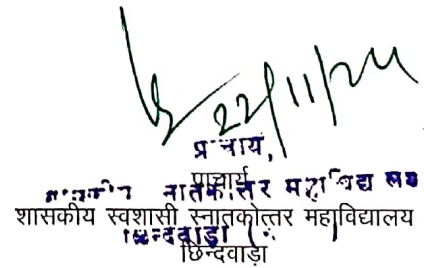 22/11/24
प्राचार्य,
प्राचार्य
स्नातकोत्तर महाविद्यालय
शासकीय स्वशासी स्नातकोत्तर महाविद्यालय
छिन्दवाड़ा
छिन्दवाड़ा